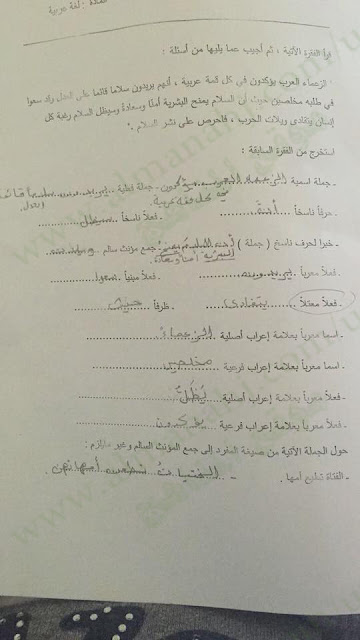 لغة عربية
اقرأ الفقرة الآتية ، ثم أجيب عما يليها من أسئلة :
" الزعماء العرب يؤكدون في كل قمة عربية ، أنهم يريدون سلاما قائما على العدل وقد سعوا
في طلبه مخلصين حيث أن السلام يمنح البشرية أمنًا وسعادةً وسيظل السلام رغبة كل
إنسان يتفادى ويلات الحرب ، فاحرص على نشر السلام . "
استخرج من الفقرة السابقة :
- جملة اسمية الزعماء العرب يؤكدون - جملة فعلية يريدون سلاما قائما
في كل قمة عربية
العدل
- حرفًا ناسخًا ... أنّ ... فعلاً ناسخًا ... سيظل
- خبرا لحرف ناسخ ( جملة ) ... جمع مؤنث سالم
البشرية أمنا وسعادة
- فعلاً معرباً يريدون ... فعلاً مبنياً سعوا
- فعلاً معتلاً يتفادى ... ظرفاً حيث
- اسما معرباً بعلامة إعراب أصلية الزعماء
- اسما معرباً بعلامة إعراب فرعية مخلصين
- فعلاً معرباً بعلامة إعراب أصلية يَظَلُّ
- فعلاً معرباً بعلامة إعراب فرعية يؤكدون
حول الجملة الآتية من صيغة المفرد إلى جمع المؤنث السالم وغير مايلزم :
- الفتاة تطيع أمها . - الفتيات يطعن أمهاتهن .